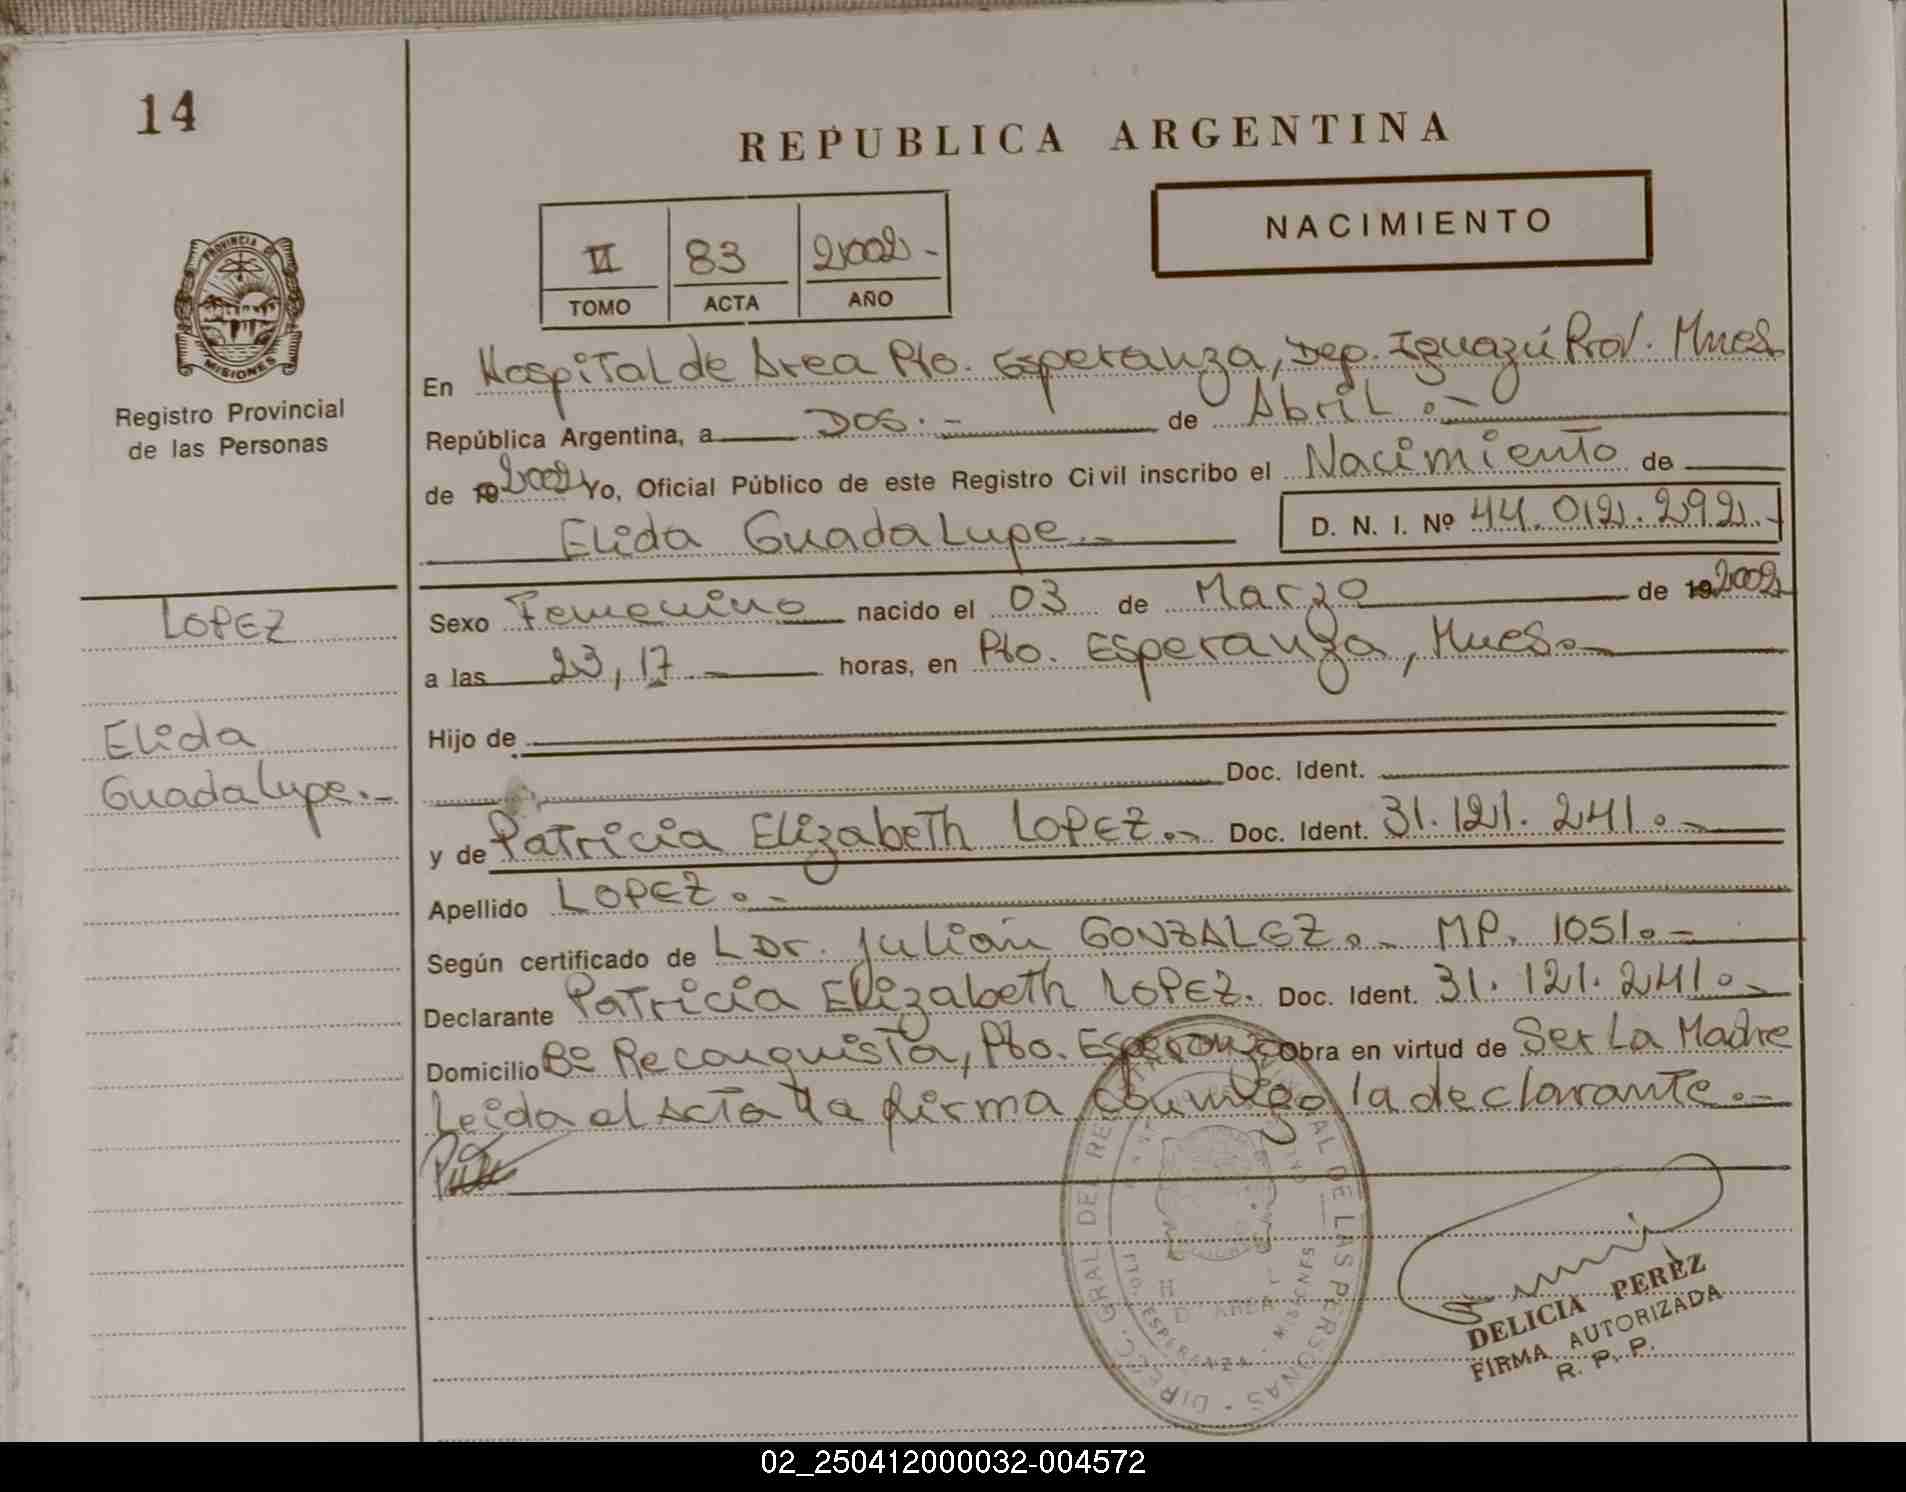 14
REPUBLICA ARGENTINA
NACIMIENTO
VI 83 2002.-
TOMO ACTA AÑO
PROVINCIA DE
MISIONES
Registro Provincial
de las Personas
En Hospital de Area Pto. Esperanza, Dep. Iguazú Prov. Mnes
República Argentina, a Dos.- de Abril.-
de 19 2002 Yo, Oficial Público de este Registro Civil inscribo el Nacimiento de
Elida Guadalupe.- D. N. I. Nº 44.012.292.-
LOPEZ
Elida
Guadalupe.-
Sexo Femenino nacido el 03 de Marzo de 19 2002
a las 23,17 horas, en Pto. Esperanza, Mnes.-
Hijo de
Doc. Ident.
y de Patricia Elizabeth LOPEZ.- Doc. Ident. 31.121.241.-
Apellido LOPEZ.-
Según certificado de L Dr. Julian GONZALEZ.- MP. 1051.-
Declarante Patricia Elizabeth LOPEZ. Doc. Ident. 31.121.241.-
Domicilio Bº Reconquista, Pto. Esperanza Obra en virtud de Ser La Madre
Leida el Acta La firma conmigo la declarante.-
DIREC. GRAL. DEL REGISTRO PROVINCIAL DE LAS PERSONAS
ESPERANZA - MISIONES
DELICIA PEREZ
FIRMA AUTORIZADA
R. P. P.
02_250412000032-004572